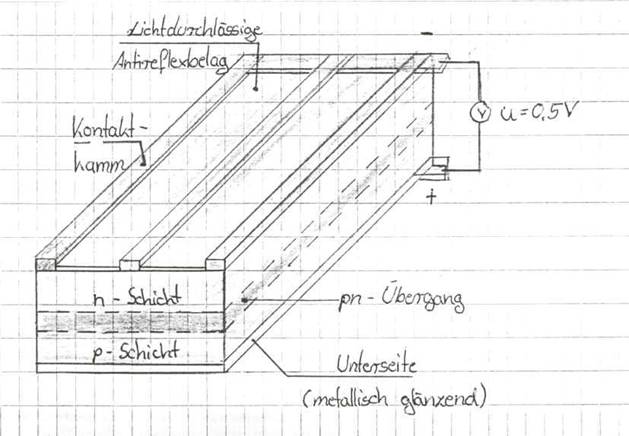 Lichtdurchlässige
Antireflexbelag
-
Kontakt-
kamm
V
U=0,5V
+
n-Schicht
pn-Übergang
p-Schicht
Unterseite
(metallisch glänzend)